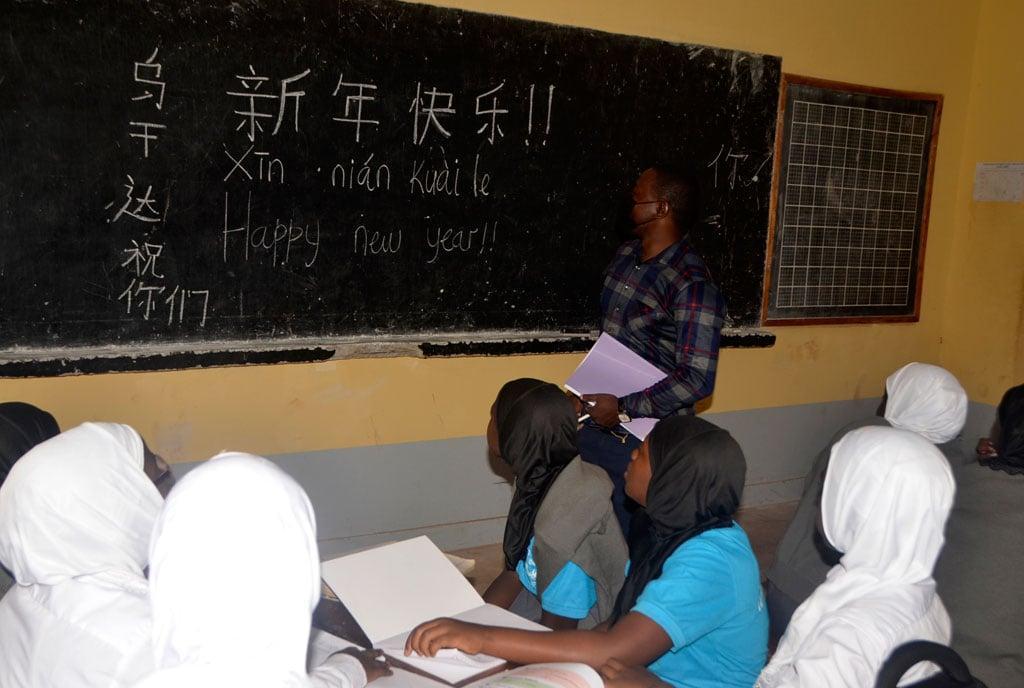 乌干达祝你们
新年快乐!!
Xīn nián kuài le
Happy new year!!
你